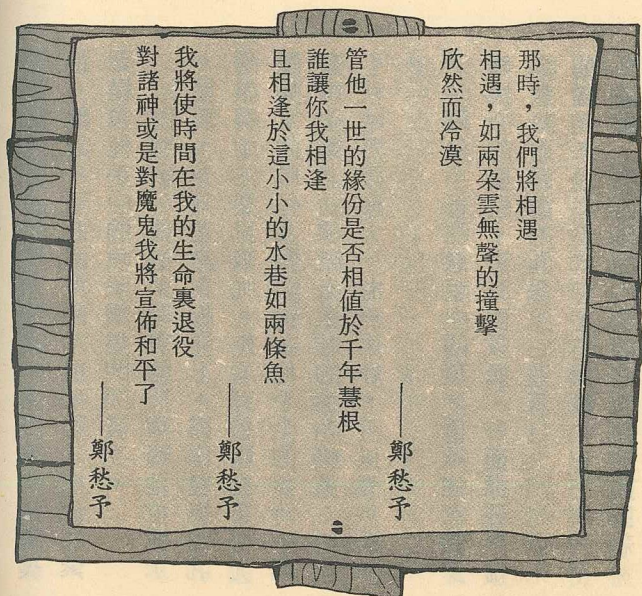 那時，我們將相遇
相遇，如兩朵雲無聲的撞擊
欣然而冷漠
——鄭愁予
管他一世的緣份是否相值於千年慧根
誰讓你我相逢
且相逢於這小小的水巷如兩條魚
——鄭愁予
我將使時間在我的生命裏退役
對諸神或是對魔鬼我將宣佈和平了
——鄭愁予